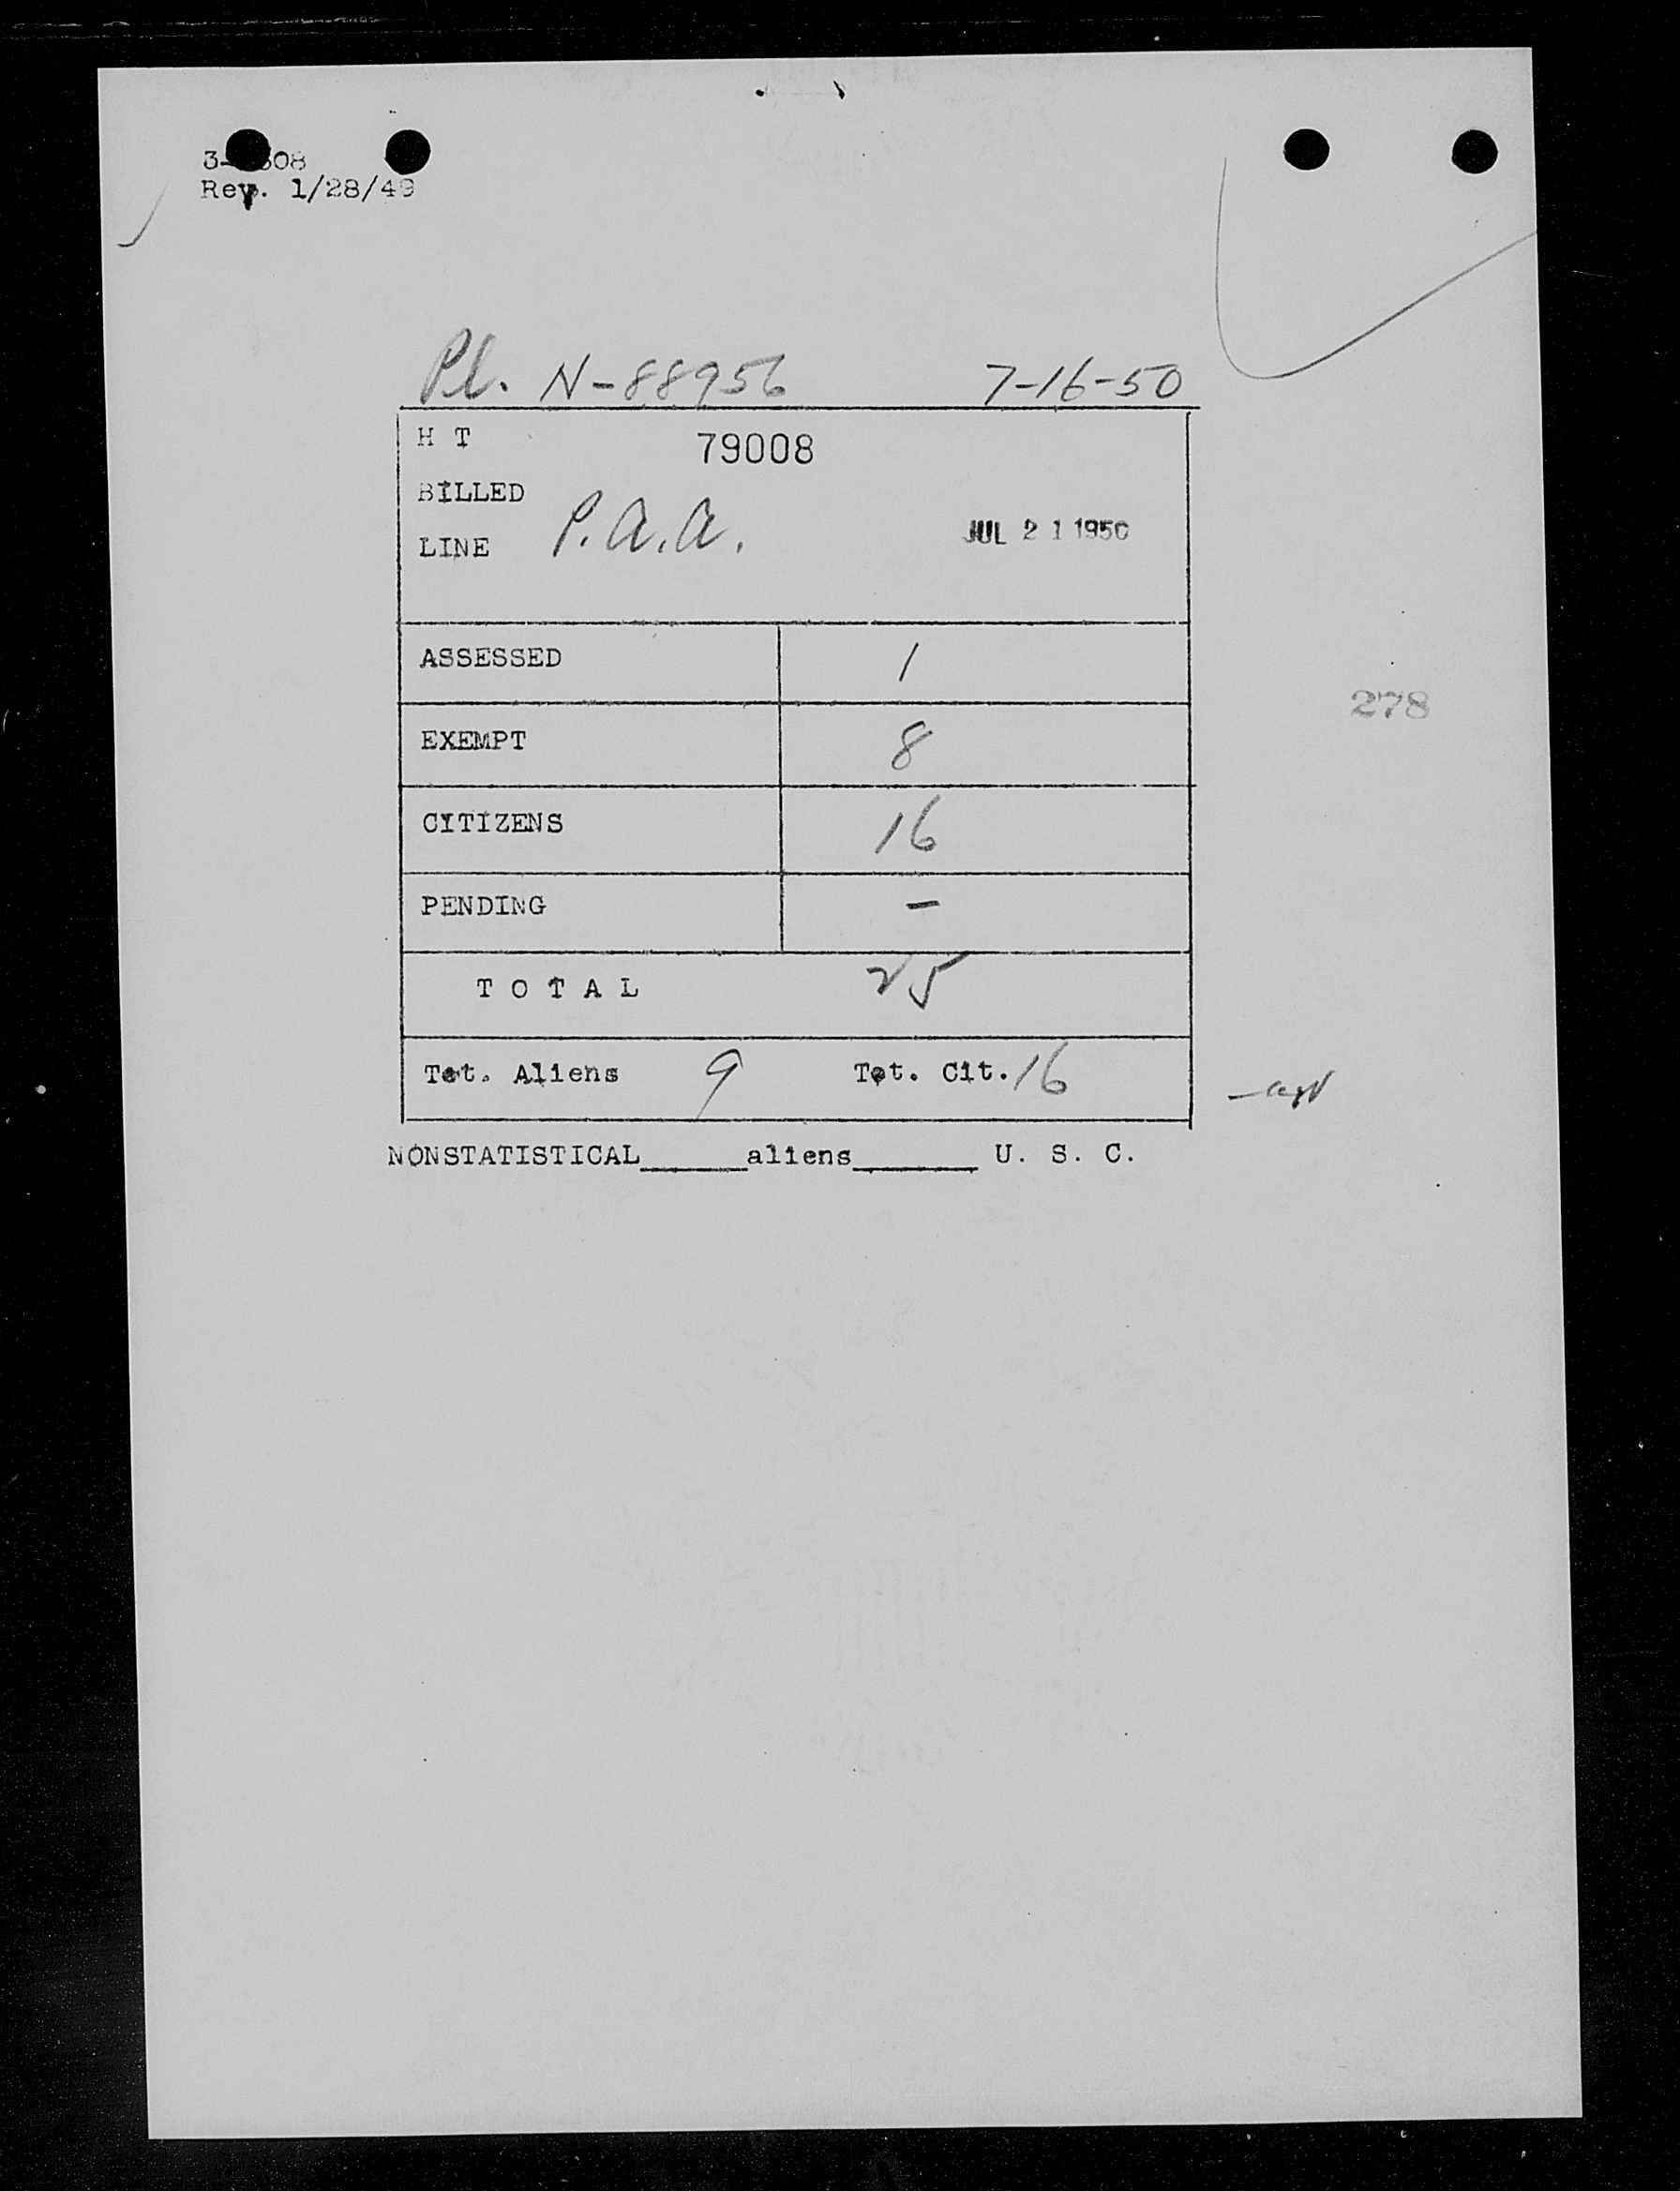 Rev. 1/28/49
Pl. N-88956 7-16-50
H T 79008
BILLED
LINE P.A.A. JUL 21 1950
ASSESSED 1
278
EXEMPT 8
CITIZENS 16
PENDING -
TOTAL 25
Tot. Aliens 9 Tot. Cit. 16
NONSTATISTICAL______aliens_______ U. S. C.